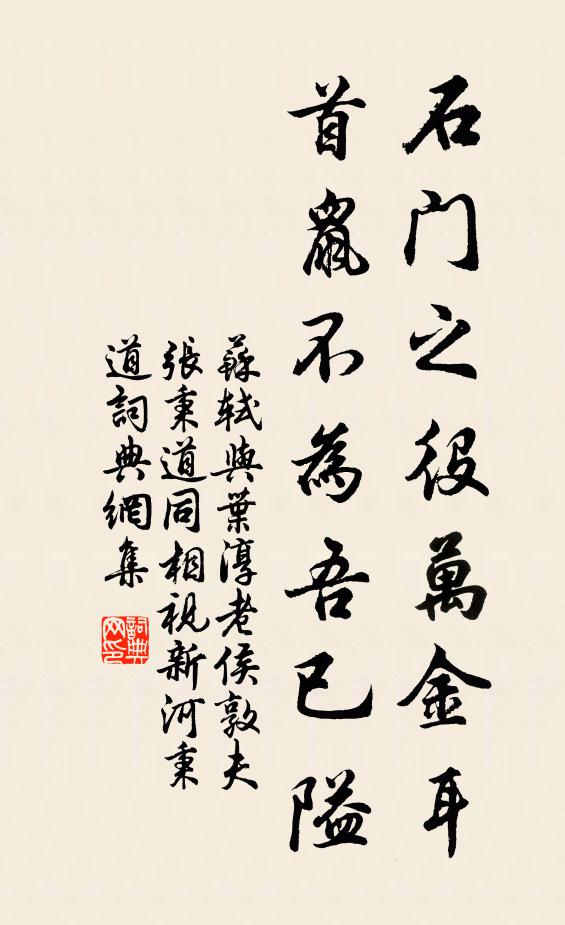 石门之役萬金耳
首鼠不為吾已隘
蘇軾與葉淳老侯敦夫
張秉道同相視新河秉
道詞典網集
詞典网印